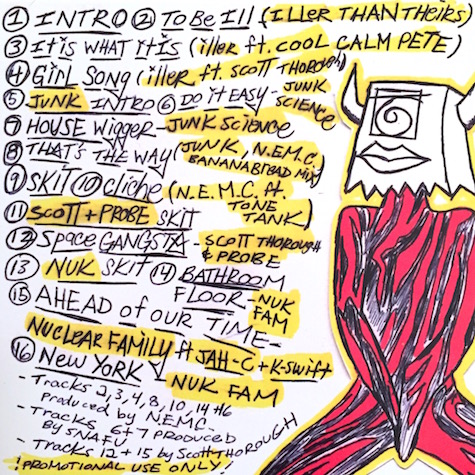 ① INTRO ② To Be Ill (ILLER THAN THEIRS)
③ It is WHAT IT IS (iller ft. COOL CALM PETE)
④ GIRL SONG (iller ft. SCOTT THOROUGH)
⑤ JUNK INTRO ⑥ DO IT EASY - JUNK SCIENCE
⑦ HOUSE Wigger - JUNK SCIENCE
⑧ THAT'S THE WAY (JUNK, N.E.M.C. BANANABREAD MIX)
⑨ SKIT ⑩ Cliche (N.E.M.C. ft. TONE TANK)
⑪ SCOTT + PROBE SKIT
⑫ Space GANGSTA - SCOTT THOROUGH & PROBE
⑬ NUK SKIT ⑭ BATHROOM FLOOR - NUK FAM
⑮ AHEAD of OUR TIME -
NUCLEAR FAMILY ft JAH-C + K-Swift
⑯ New YORK - NUK FAM
- Tracks 2, 3, 4, 8, 10, 14 +16
Produced by NEMC -
- Tracks 6 + 7 PRODUCED
By SNAFU
- Tracks 12 + 15 by Scott THOROUGH
! PROMOTIONAL USE ONLY!